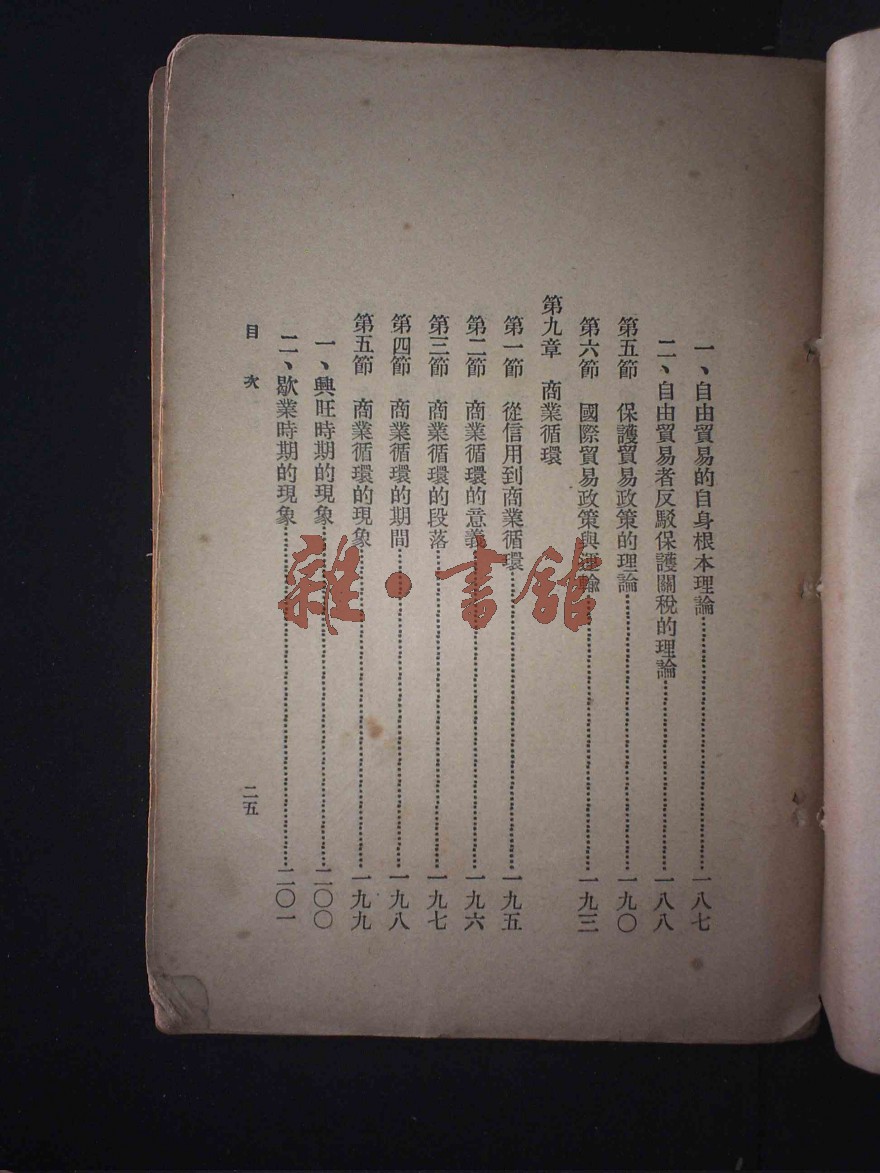 一、自由貿易的自身根本理論……一八七
二、自由貿易者反駁保護關稅的理論……一八八
第五節　保護貿易政策的理論……一九〇
第六節　國際貿易政策與運輸……一九三
第九章　商業循環
第一節　從信用到商業循環……一九五
第二節　商業循環的意義……一九六
第三節　商業循環的段落……一九七
第四節　商業循環的期間……一九八
第五節　商業循環的現象……一九九
一、興旺時期的現象……二〇〇
二、歇業時期的現象……二〇一
目次
二五
雜·書館